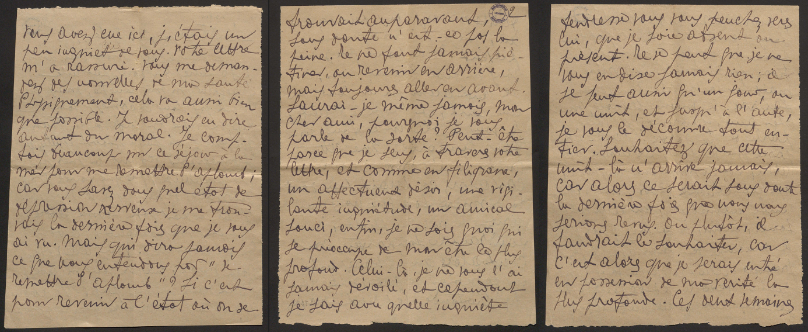 vous avez, que ici, j'étais un
peu inquiet de vous. Votre lettre
m'a rassuré. Vous me deman-
dez des nouvelles de ma santé
Physiquement, cela va aussi bien
que possible. Je voudrais en dire
autant du moral. Je comp-
tais beaucoup sur ce séjour à la
mer pour me remettre d'aplomb,
car vous savez dans quel état de
dépression nerveuse je me trou-
vais la dernière fois que je vous
ai vu. Mais qui dira jamais
ce que nous entendons par "se
remettre d'aplomb"? Si c'est
pour revenir à l'état où on se
trouvait auparavant, 2
sans doute n'est-ce pas la
peine. Il ne faut jamais pié-
tiner, ou revenir en arrière,
mais toujours aller en avant.
Saurai-je même jamais, mon
cher ami, pourquoi je vous
parle de la sorte? Peut-être
parce que je sens, à travers votre
lettre, et comme en filigrane,
un affectueux désir, une vigi-
lante inquiétude, un amical
souci, enfin, je ne sais quoi qui
se préoccupe de mon être le plus
profond. Celui-là, je ne vous l'ai
jamais dévoilé, et cependant
je sais avec quelle inquiète
tendresse vous vous penchez vers
lui, que je sois absent ou
présent. Il se peut que je ne
vous en dise jamais rien; il
se peut aussi qu'un jour, ou
une nuit, et jusqu'à l'aube,
je vous le découvre tout en-
tier. Souhaitez que cette
nuit-là n'arrive jamais,
car alors ce serait sans doute
la dernière fois que nous nous
serions revus. Ou plutôt, il
faudrait le souhaiter, car
c'est alors que je serais entré
en possession de ma vérité la
plus profonde. Ces deux semaines